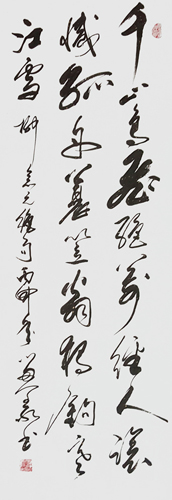 千山鳥飛絕萬徑人踪
滅孤舟蓑笠翁獨釣寒
江雪 柳宗元 丙申 書